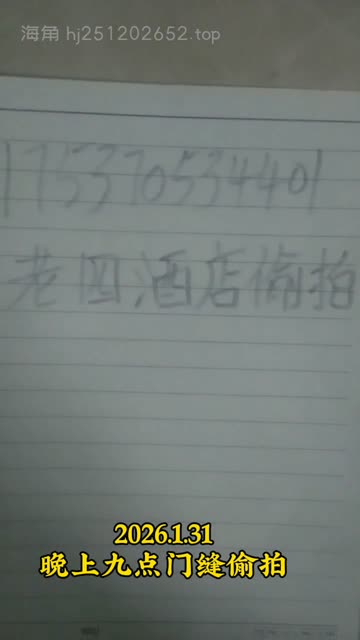 海角 hj251202652.top
175370534401
老四酒店偷拍
2026.1.31
晚上九点门缝偷拍